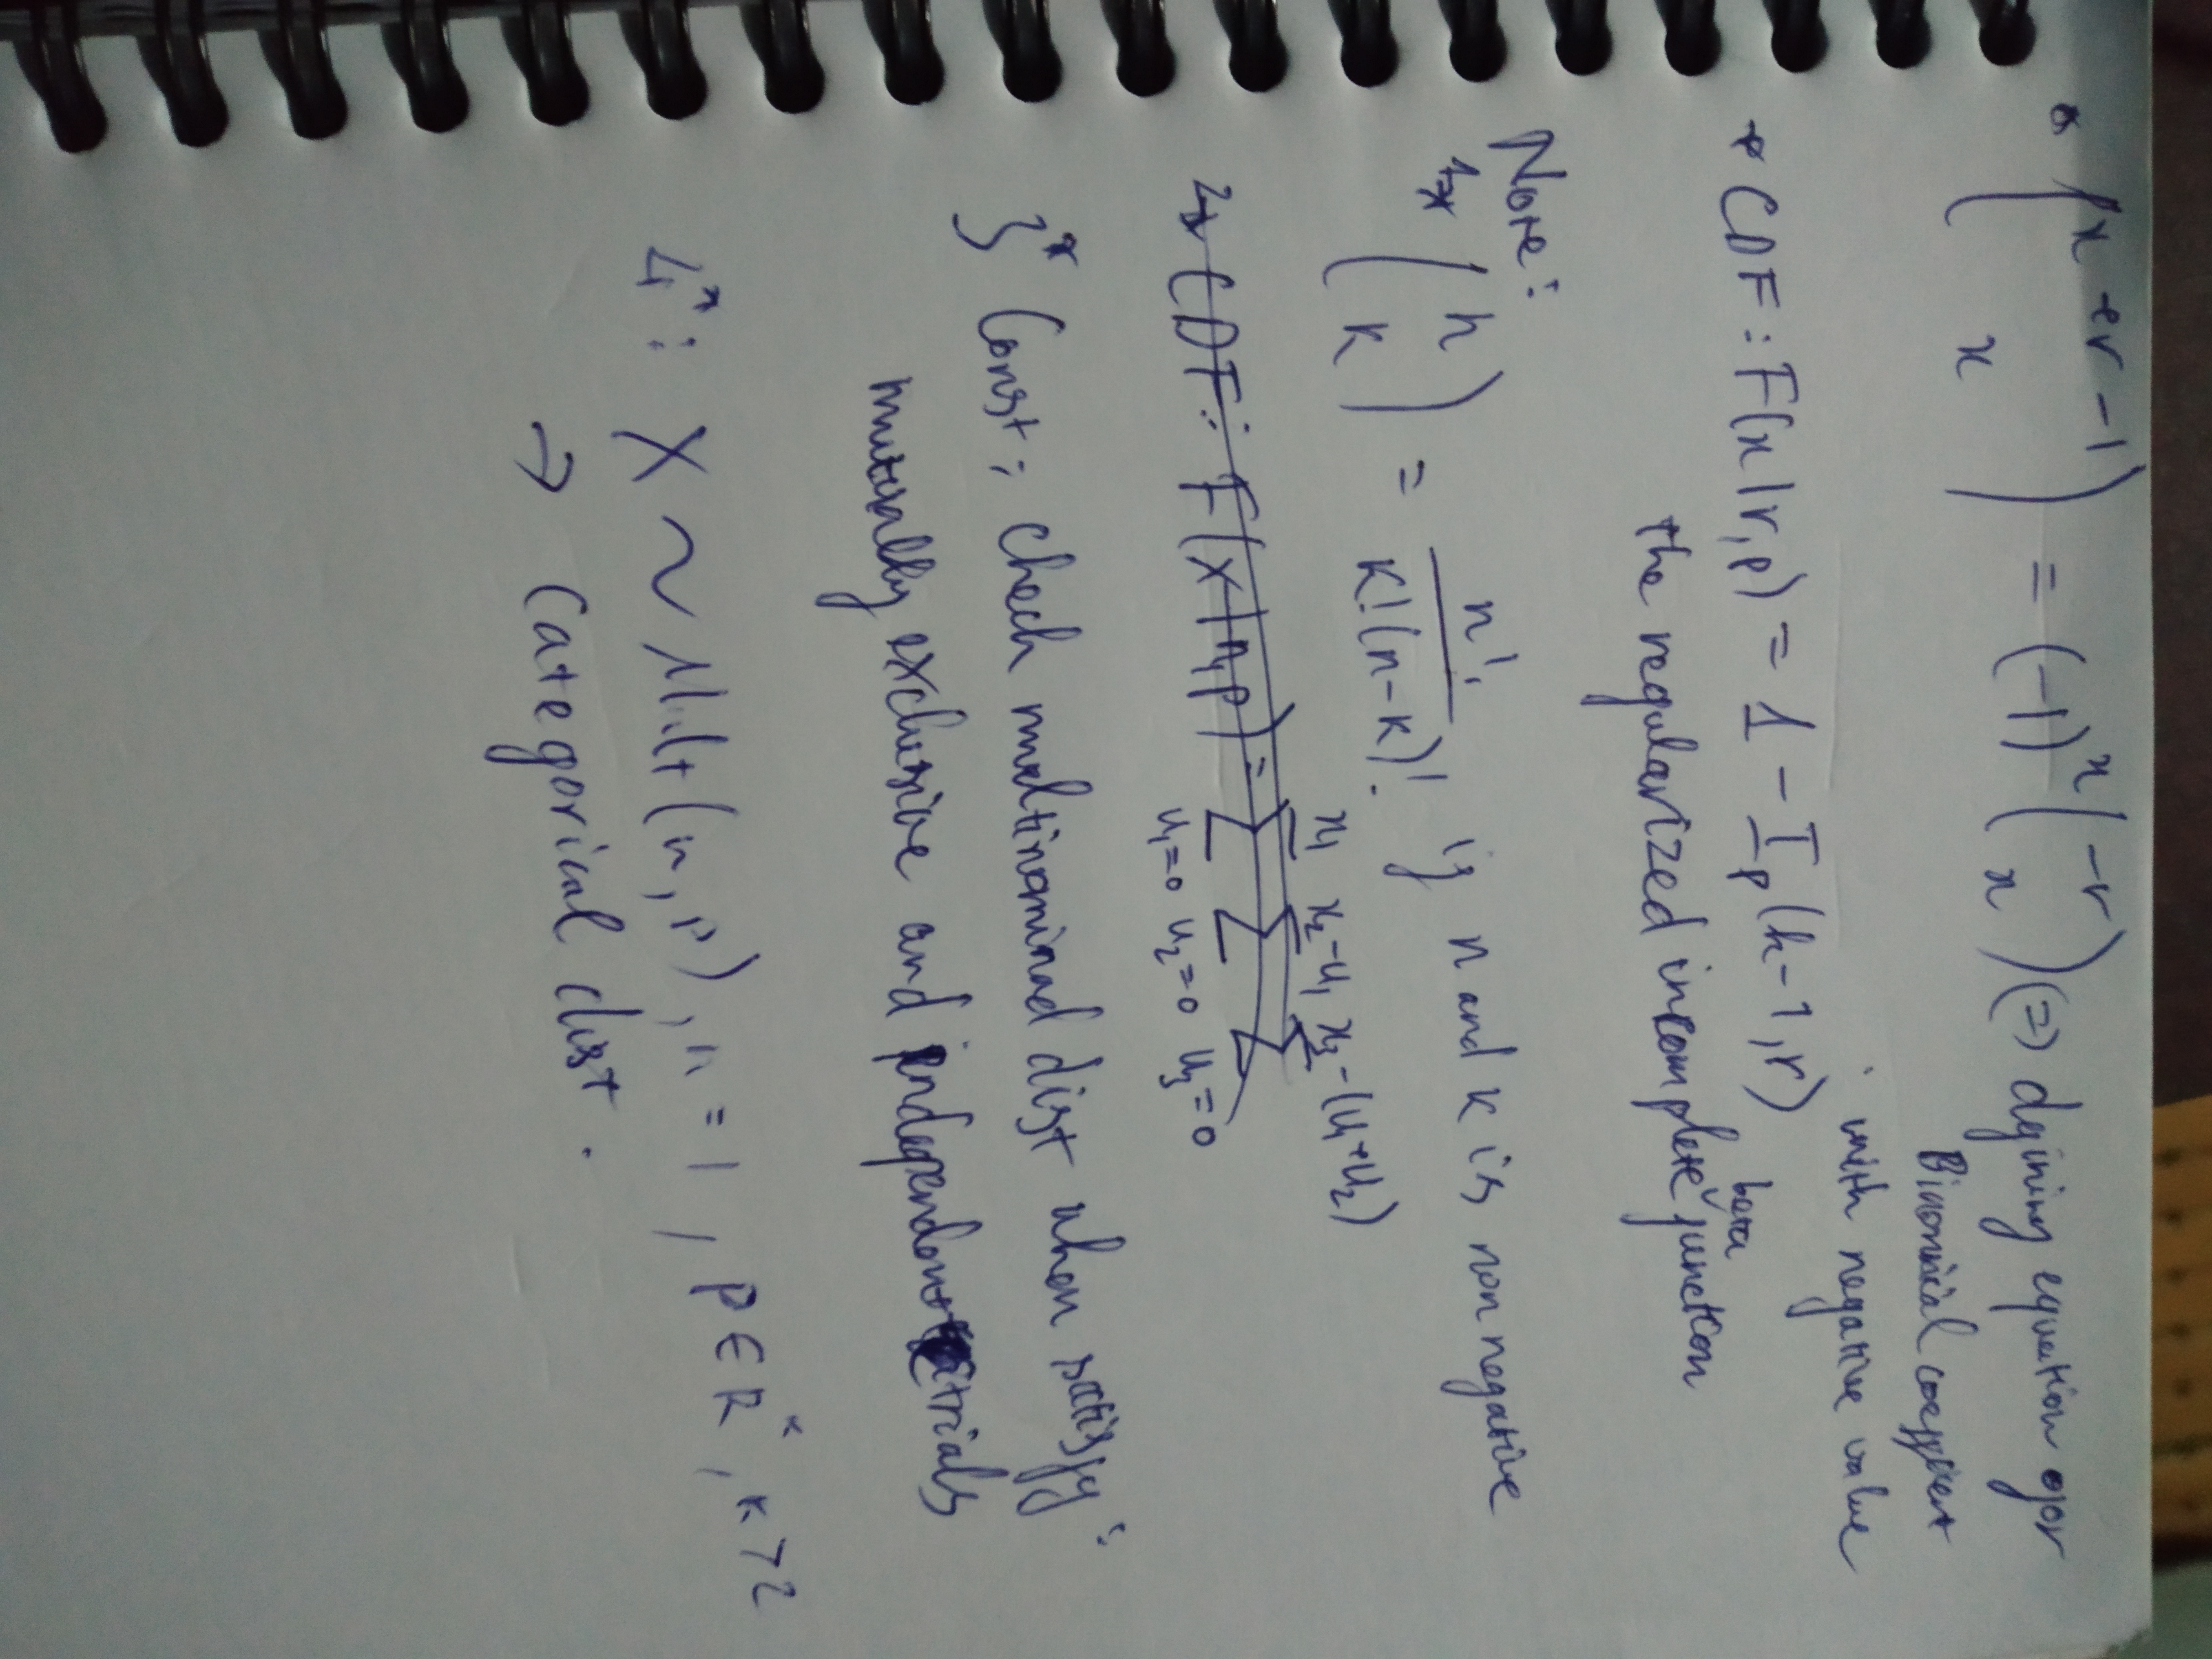 * (x+r-1 x) = (-1)^x (-r x) (=) defining equation for
Binomial coefficient
with negative value
* CDF: F(x|r,p) = 1 - I_p(k-1,r)
the regularized incomplete beta function
Note:
1* (n k) = n! / k!(n-k)! if n and k is non negative
2* CDF: F(x|n,p) = Σ_{u₁=0}^{x₁} Σ_{u₂=0}^{x₂-u₁} Σ_{u₃=0}^{x₃-(u₁+u₂)}
3* Const: check multinominad dist when satisfy:
mutually exclusive and independent trials
4*: X ~ Mult(n, p), n = 1, p ∈ R^k, k > 2
→ Categorical dist.